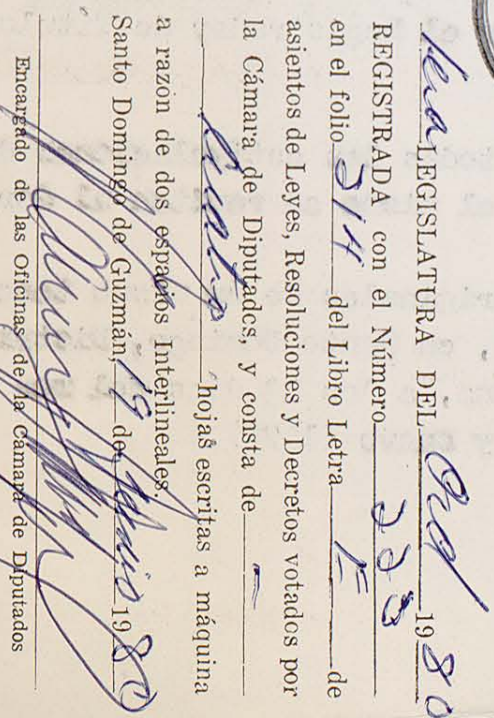 1era LEGISLATURA DEL Ord 1980
REGISTRADA con el Número 223
en el folio 244 del Libro Letra E de
asientos de Leyes, Resoluciones y Decretos votados por
la Cámara de Diputados, y consta de —
cuatro hojas escritas a máquina
a razón de dos espacios interlineales.
Santo Domingo de Guzmán, 19 de Junio 1980
Encargado de las Oficinas de la Cámara de Diputados